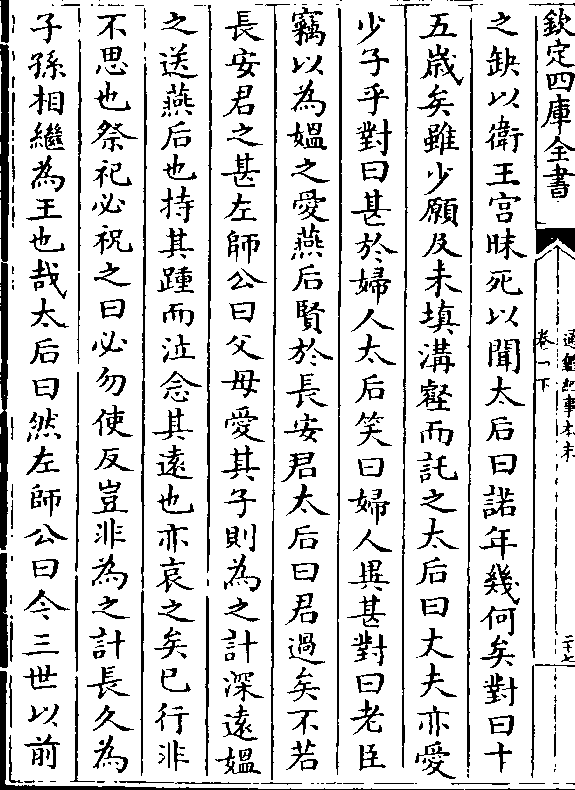 欽定四庫全書
通鑑紀事本末
卷一下
二十七
之缺以衛王宫昧死以聞太后曰諾年幾何矣對曰十
五歲矣雖少願及未填溝壑而託之太后曰丈夫亦愛
少子乎對曰甚於婦人太后笑曰婦人異甚對曰老臣
竊以為媼之愛燕后賢於長安君太后曰君過矣不若
長安君之甚左師公曰父母愛其子則為之計深遠媼
之送燕后也持其踵而泣念其遠也亦哀之矣已行非
不思也祭祀必祝之曰必勿使反豈非為之計長久為
子孫相繼為王也哉太后曰然左師公曰今三世以前